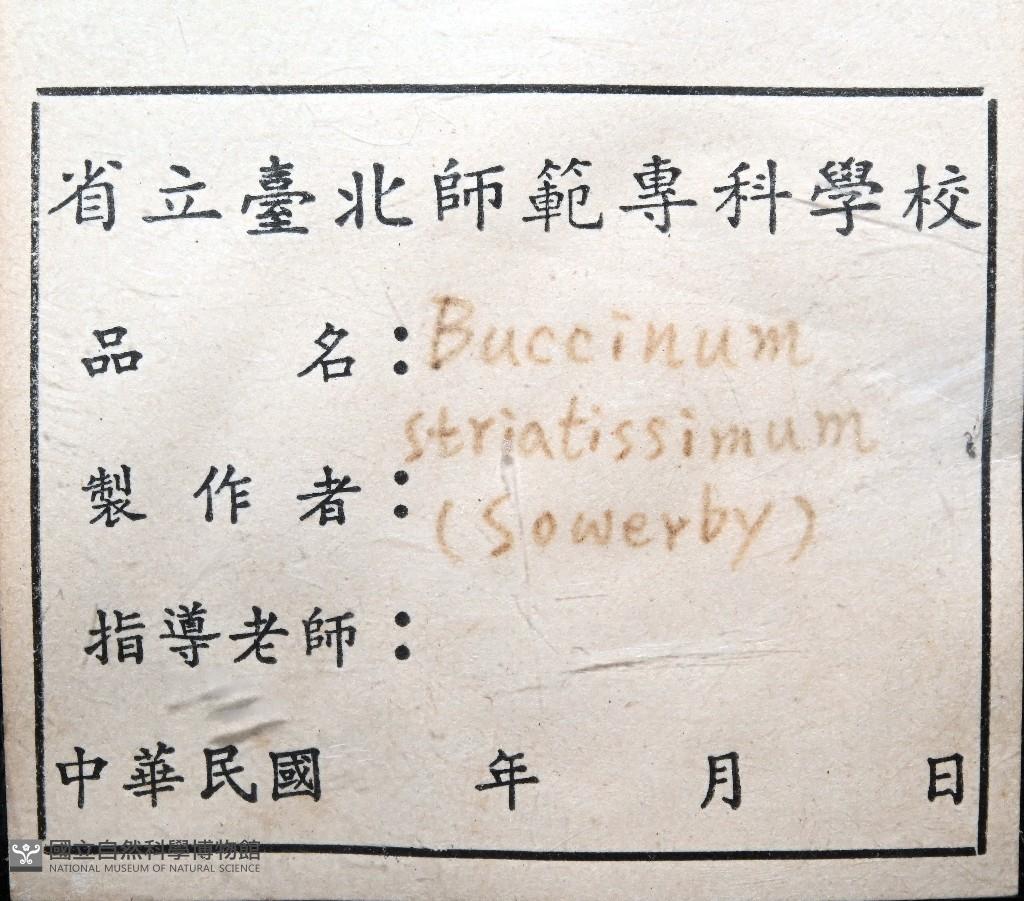 省立臺北師範專科學校
品名：Buccinum
striatissimum
製作者：
(Sowerby)
指導老師：
中華民國 年 月 日
國立自然科學博物館
NATIONAL MUSEUM OF NATURAL SCIENCE